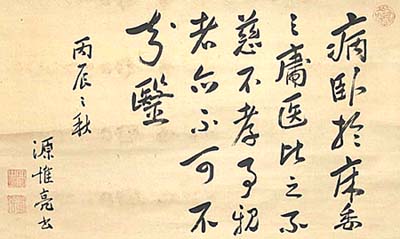 病臥於床委
之庸医比之不
慈不孝事親
者亦不可不
知醫
丙辰之秋
源惟亮書